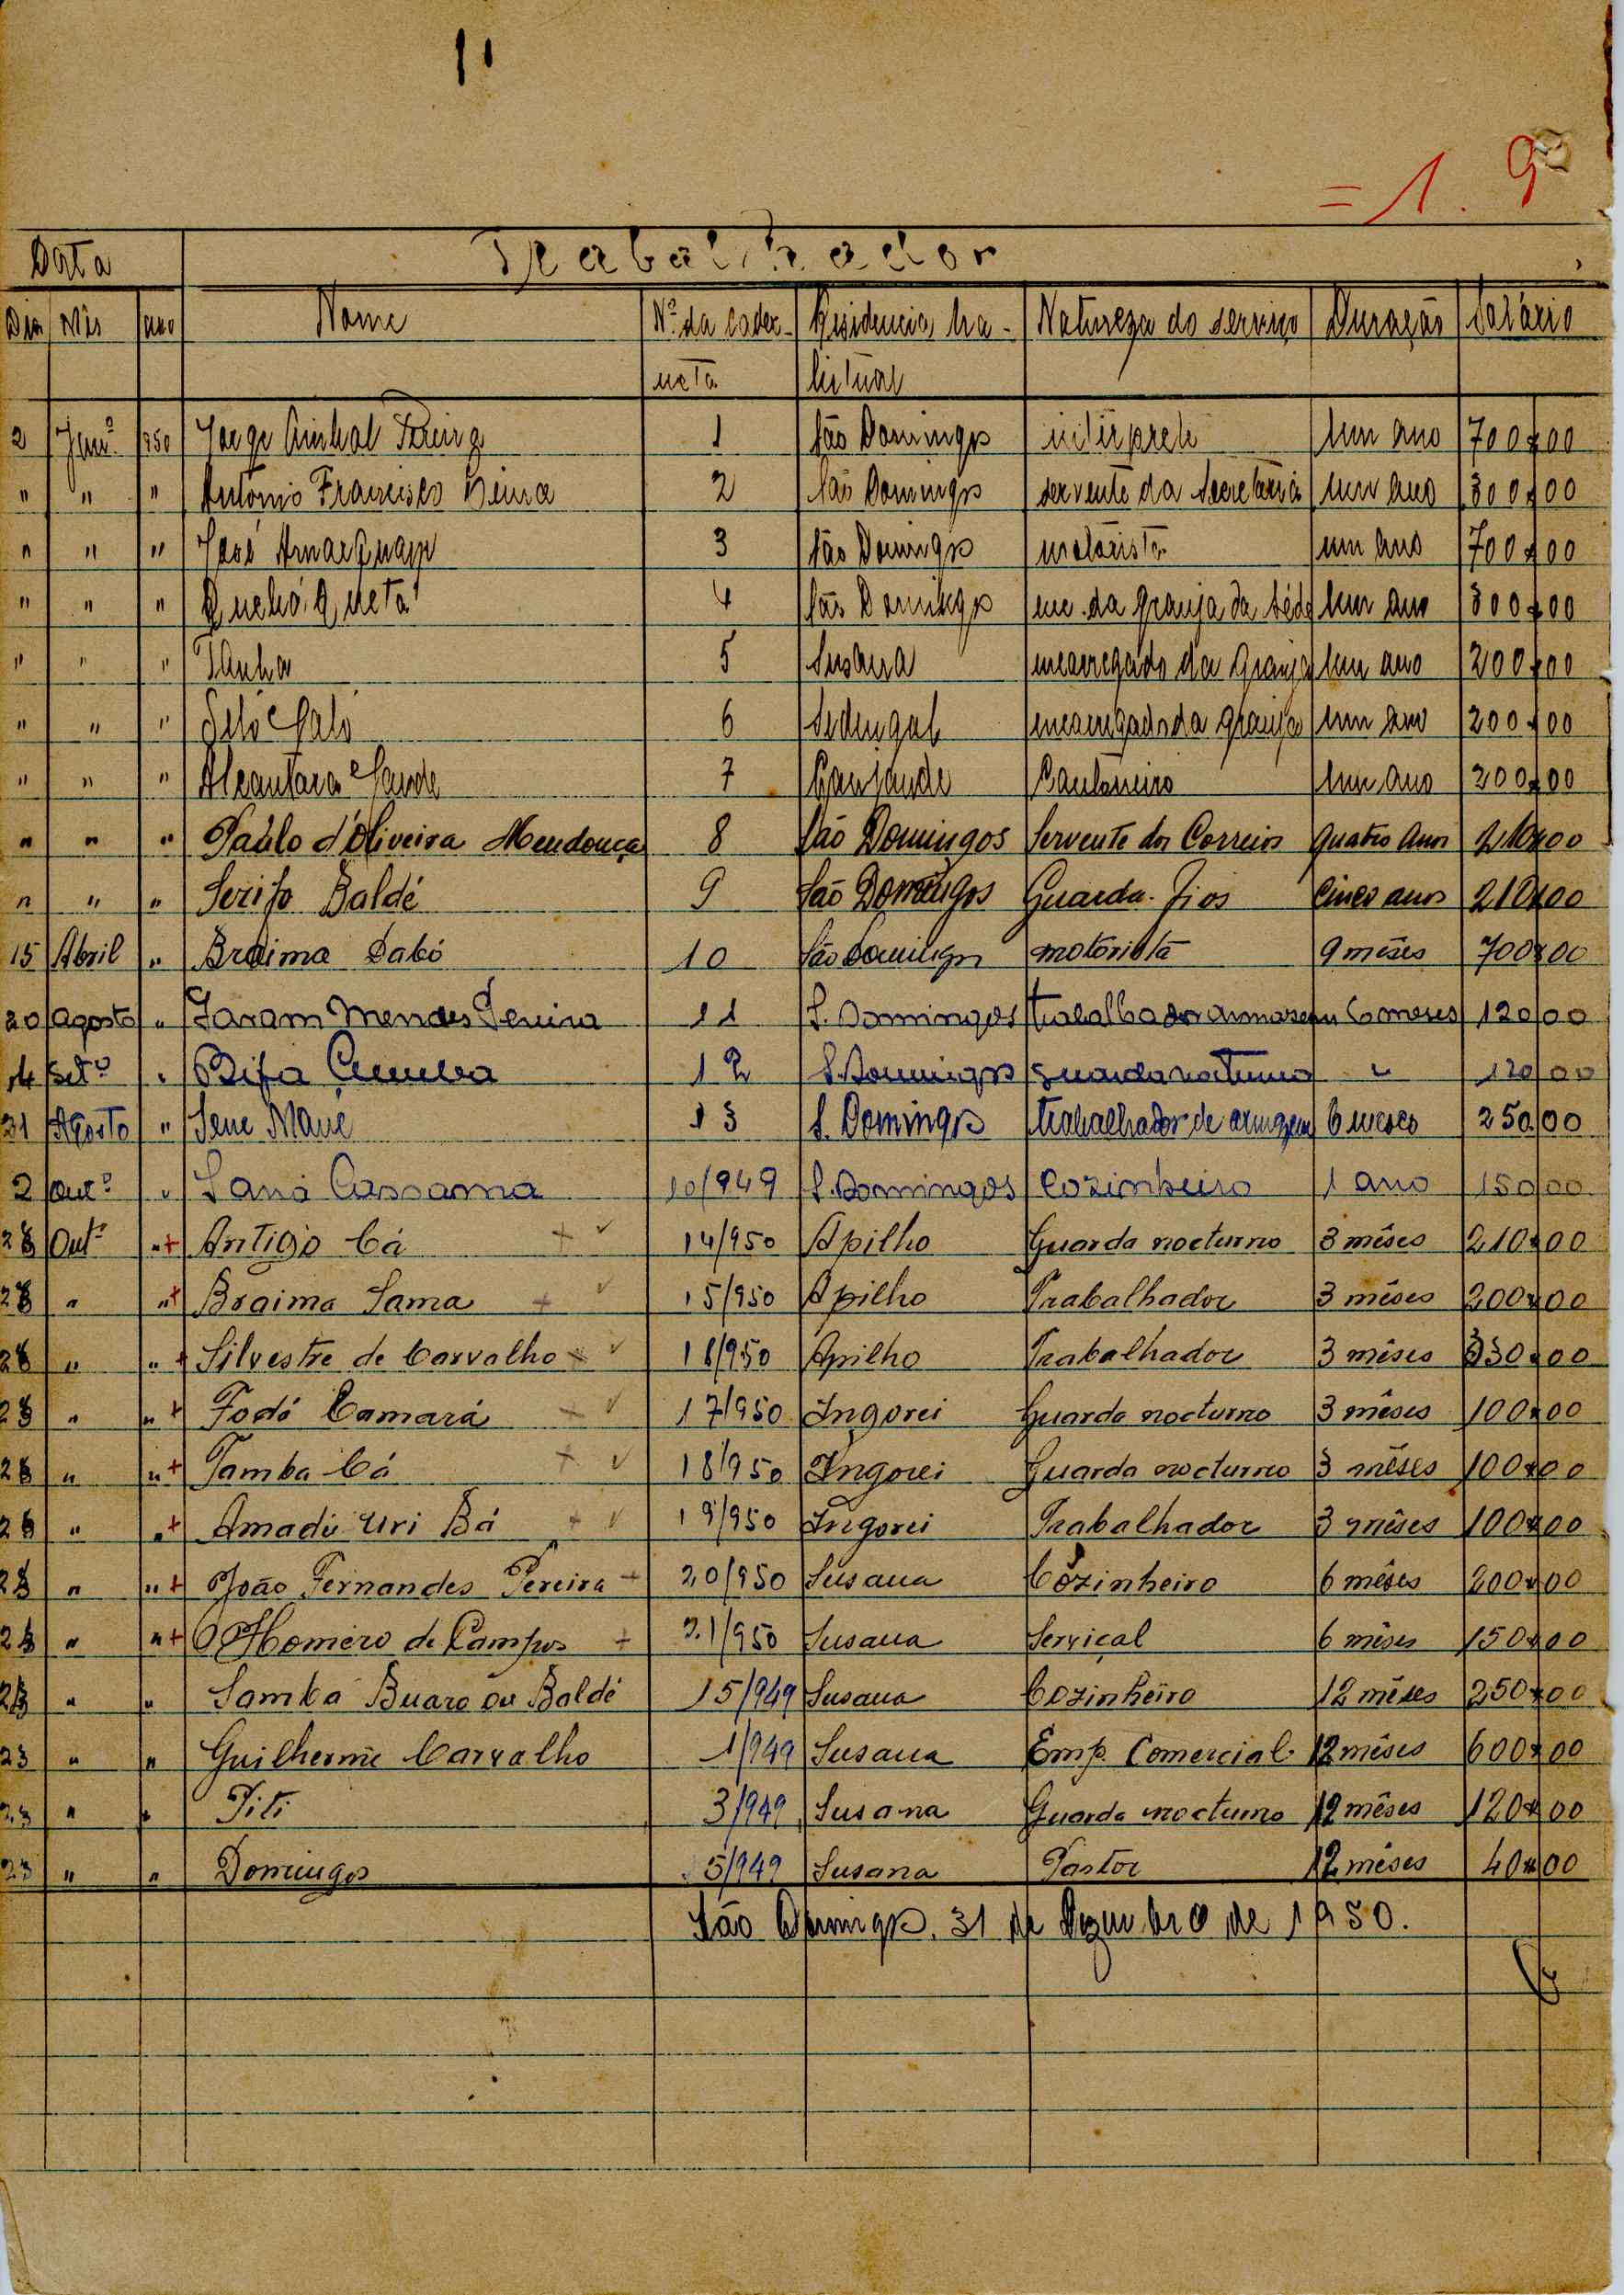 = 1. 9
Data Trabalhador
Dia Mês ano Nome Nº da cader- Residencia ha- Natureza do serviço Duração Salário
neta bitual
2 Janº 950 Jorge 1 São Domingos intérprete um ano 700$00
" " " António Francisco 2 São Domingos servente da Secretaria um ano 300$00
" " " José 3 São Domingos motorista um ano 700$00
" " " 4 São Domingos enc. da granja da séde um ano 300$00
" " " Tanha 5 Susana encarregado da granja um ano 200$00
" " " 6 Sedengal encarregado da granja um ano 200$00
" " " Alcantara Sande 7 Canjande Cantoneiro um ano 200$00
" " " Paulo d'Oliveira Mendonça 8 São Domingos Servente dos Correios quatro anos 210$00
" " " Serifo Baldé 9 São Domingos Guarda-Fios cinco anos 210$00
15 Abril " Braima Dabó 10 São Domingos motorista 9 mêses 700$00
20 Agosto " Jaram Mendes Pereira 11 S. Domingos trabalhador armazem 6 meses 120 00
14 Setº " Bifa 12 S. Domingos guarda nocturno " 120 00
31 Agosto " Sene Mané 13 S. Domingos trabalhador de armazem 6 meses 250 00
2 Outº " Sana Cassama 10/949 S. Domingos Cozinheiro 1 ano 150 00
23 Outº " + Antigo Cá + ✓ 14/950 Apilho Guarda nocturno 3 mêses 210$00
23 " " + Braima Sama + ✓ 15/950 Apilho Trabalhador 3 mêses 200$00
23 " " + Silvestre de Carvalho + ✓ 16/950 Apilho Trabalhador 3 mêses 330$00
23 " " + Fodé Camará + ✓ 17/950 Ingorei Guarda nocturno 3 mêses 100$00
23 " " + Tamba Cá + ✓ 18/950 Ingorei Guarda nocturno 3 mêses 100$00
23 " " + Amadú Uri Bá + ✓ 19/950 Ingorei Trabalhador 3 mêses 100$00
23 " " + João Fernandes Pereira + 20/950 Susana Cozinheiro 6 mêses 200$00
23 " " + Homéro de Campos + 21/950 Susana Serviçal 6 mêses 150$00
23 " " Samba Buaro ou Baldé 15/949 Susana Cozinheiro 12 mêses 250$00
23 " " Guilherme Carvalho 1/949 Susana Emp. Comercial 12 mêses 600$00
23 " " Piti 3/949 Susana Guarda nocturno 12 mêses 120$00
23 " " Domingos 5/949 Susana Pastor 12 mêses 40$00
São Domingos, 31 de Dezembro de 1950.